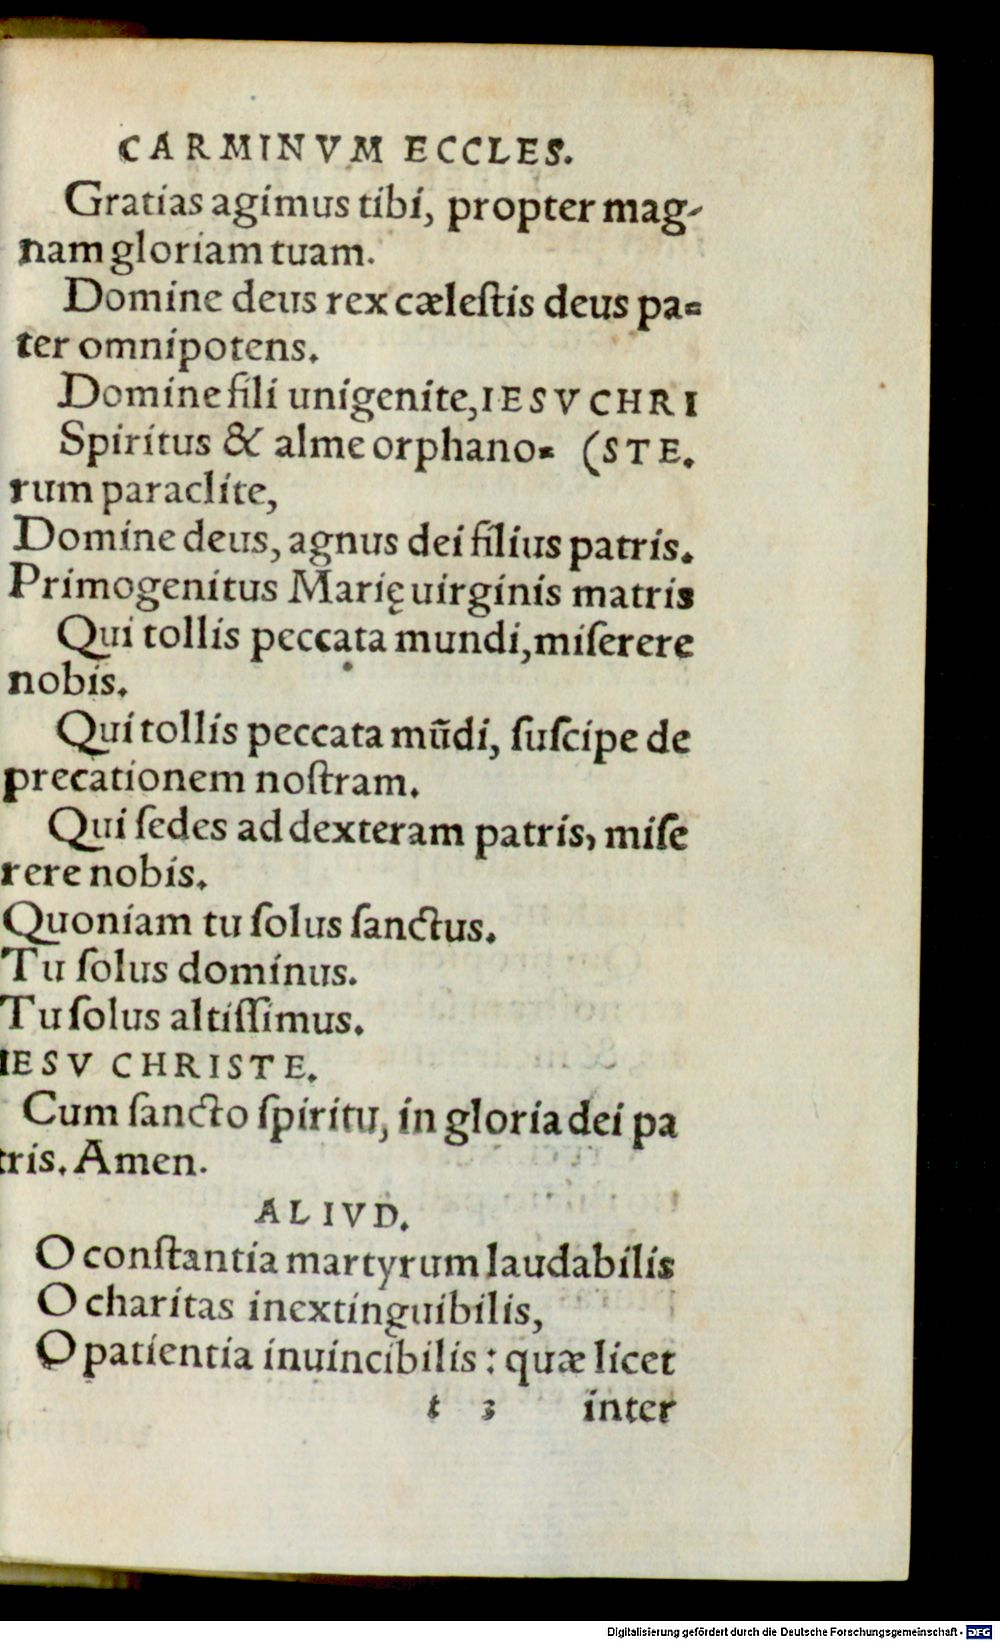 CARMINVM ECCLES.
Gratias agimus tibi, propter mag-
nam gloriam tuam.
Domine deus rex cælestis deus pa=
ter omnipotens.
Domine fili unigenite, IESV CHRI
Spiritus & alme orphano= (STE.
rum paraclite,
Domine deus, agnus dei filius patris.
Primogenitus Marię uirginis matris
Qui tollis peccata mundi, miſerere
nobis.
Qui tollis peccata mũdi, ſuſcipe de
precationem noſtram.
Qui ſedes ad dexteram patris, miſe
rere nobis.
Quoniam tu ſolus ſanctus.
Tu ſolus dominus.
Tu ſolus altiſſimus.
IESV CHRISTE.
Cum ſancto ſpiritu, in gloria dei pa
tris. Amen.
ALIVD.
O conſtantia martyrum laudabilis
O charitas inextinguibilis,
O patientia inuincibilis: quæ licet
t 3 inter
Digitalisierung gefördert durch die Deutsche Forschungsgemeinschaft - DFG